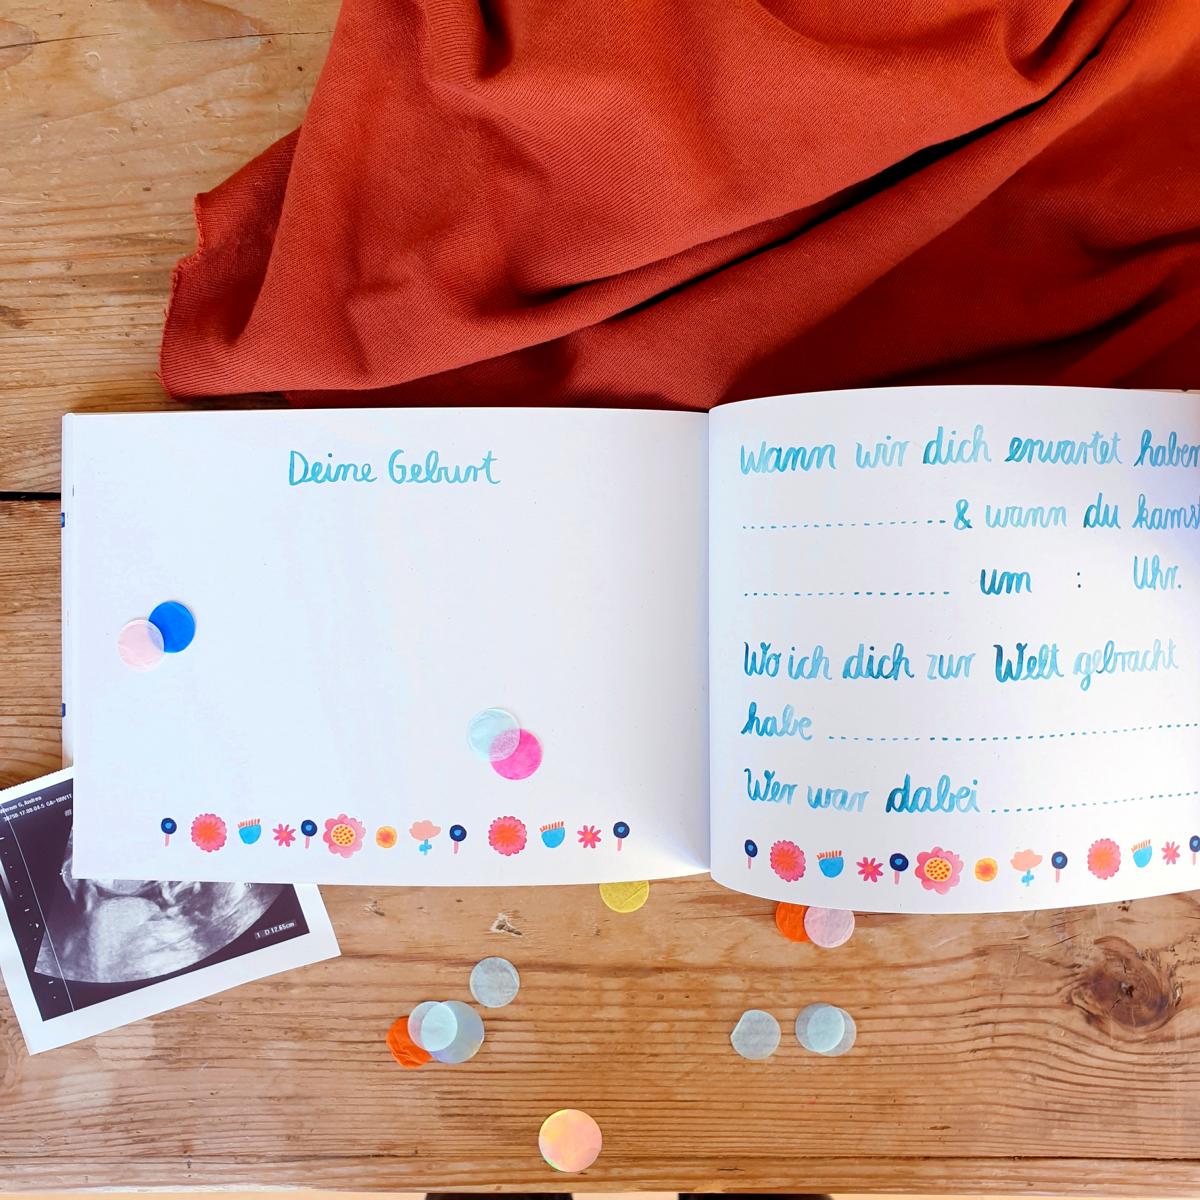 Deine Geburt
Wann wir dich erwartet haben
.................... & wann du kamst
.................... um : Uhr.
Wo ich dich zur Welt gebracht
habe ....................
Wer war dabei ....................
1 D 12.85cm